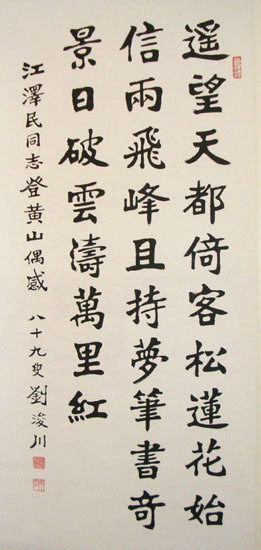 遥望天都倚客松蓮花始
信兩飛峰且持夢筆書奇
景日破雲濤萬里紅
江澤民同志登黃山偶感 八十九叟劉浚川